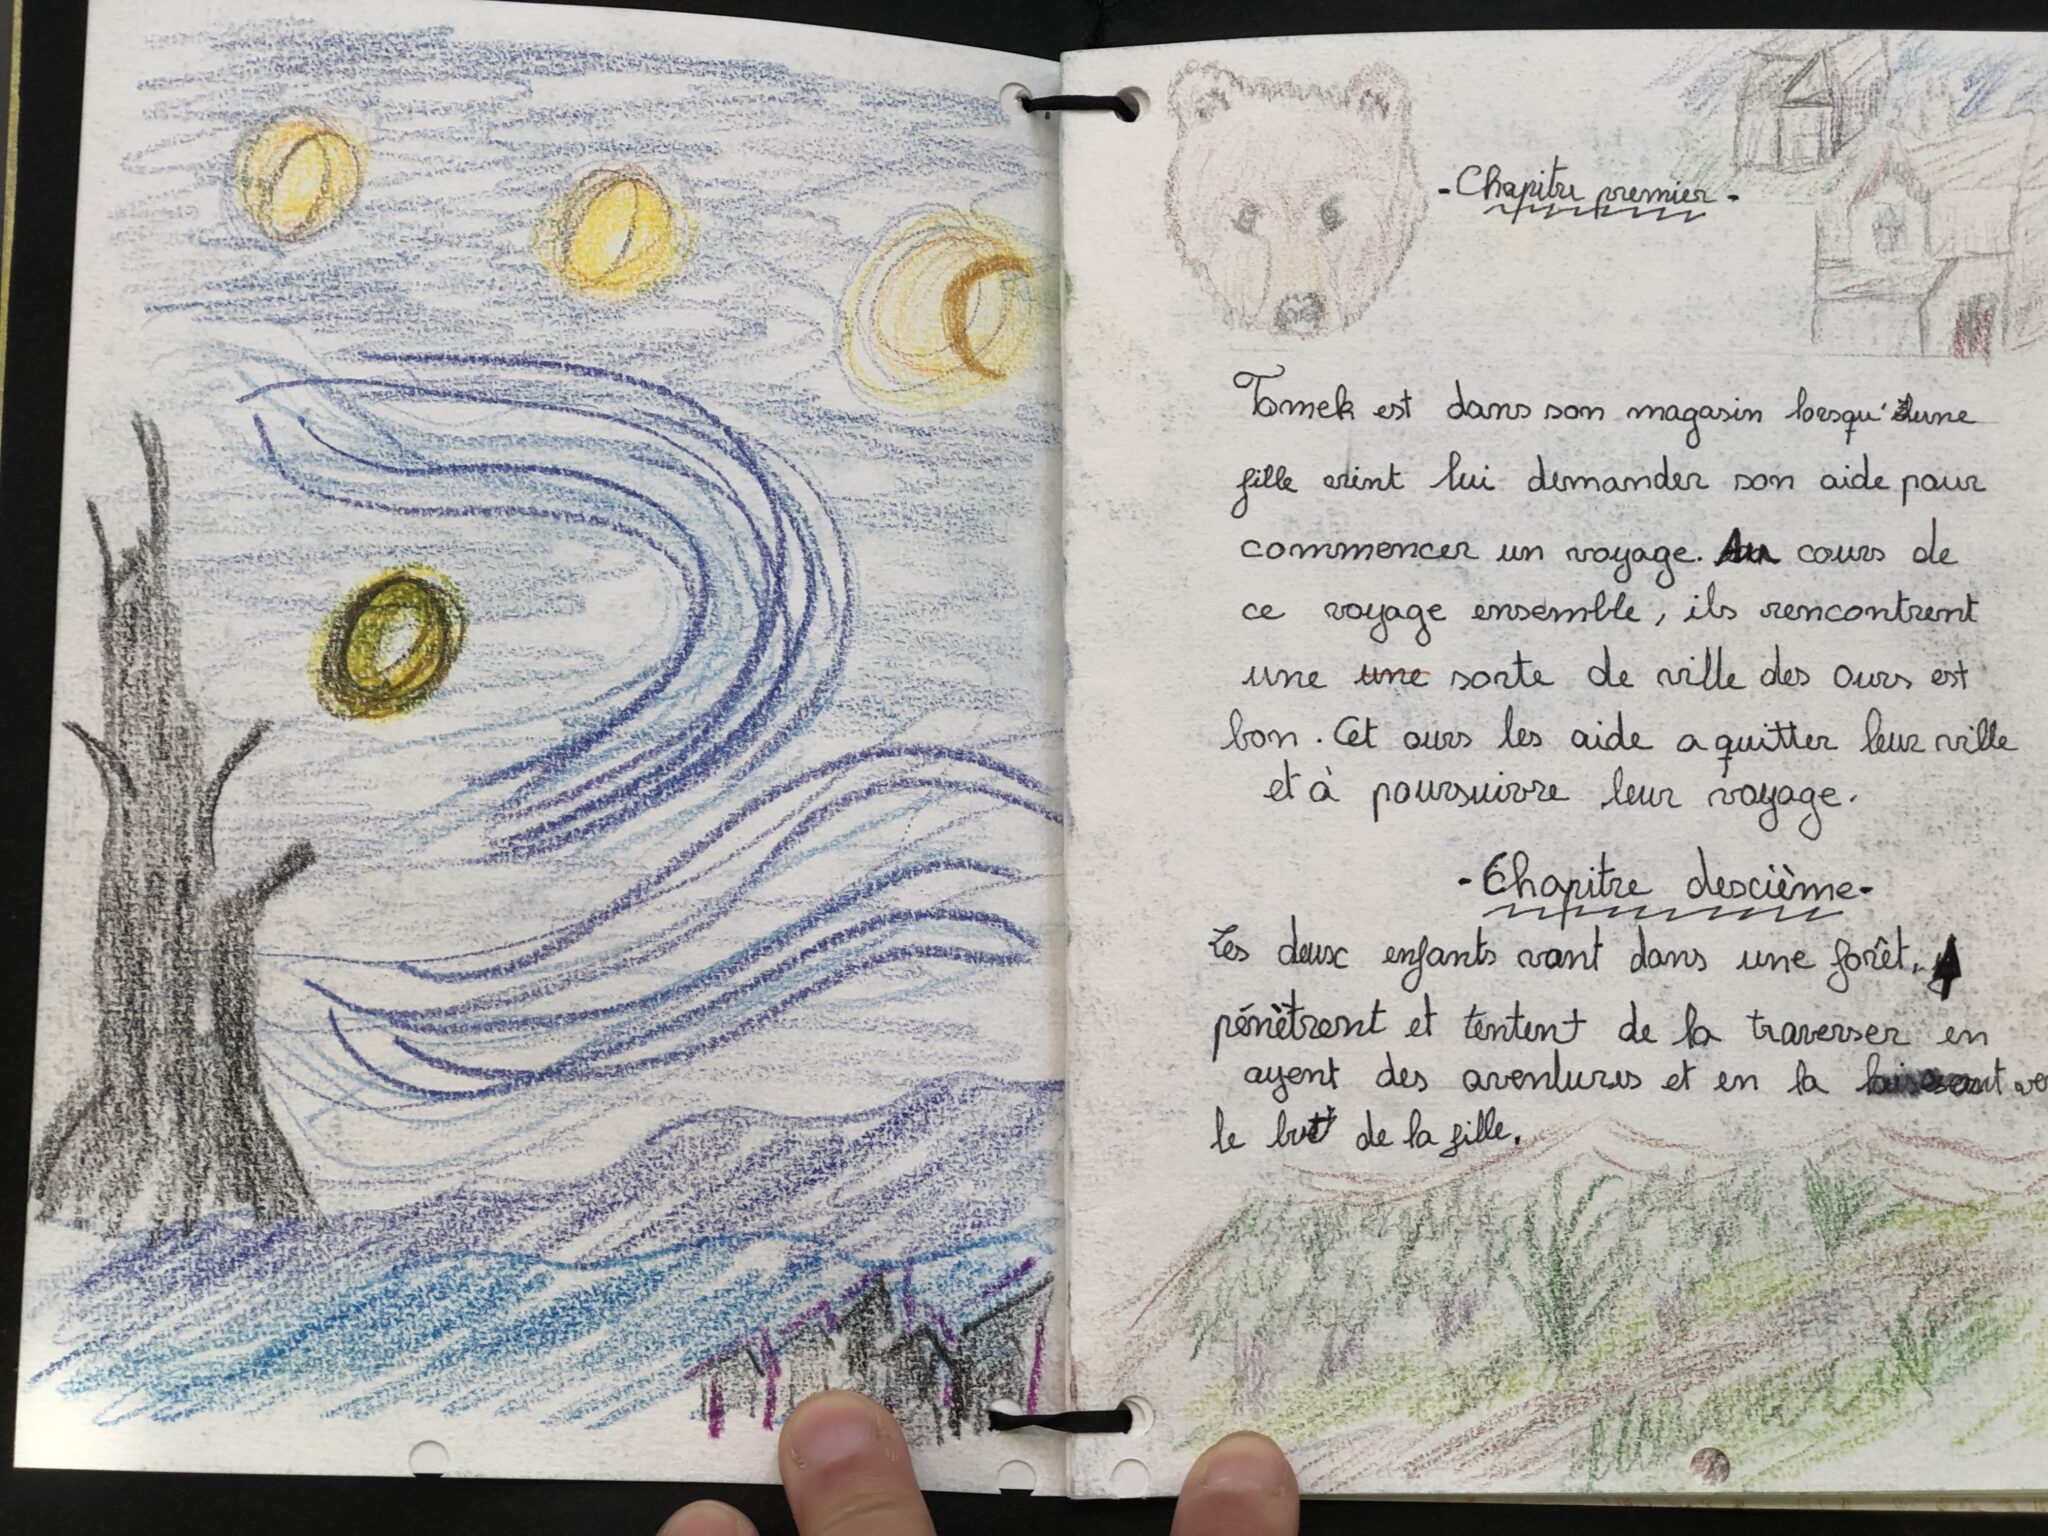 - Chapitre premier -
Tomek est dans son magasin lorsqu'une
fille vient lui demander son aide pour
commencer un voyage. Au cours de
ce voyage ensemble, ils rencontrent
une une sorte de ville des ours est
bon. Cet ours les aide a quitter leur ville
et à poursuivre leur voyage.
- Chapitre deuscième -
Les deux enfants vont dans une forêt,
pénètrent et tentent de la traverser en
ayent des aventures et en la
le but de la fille.